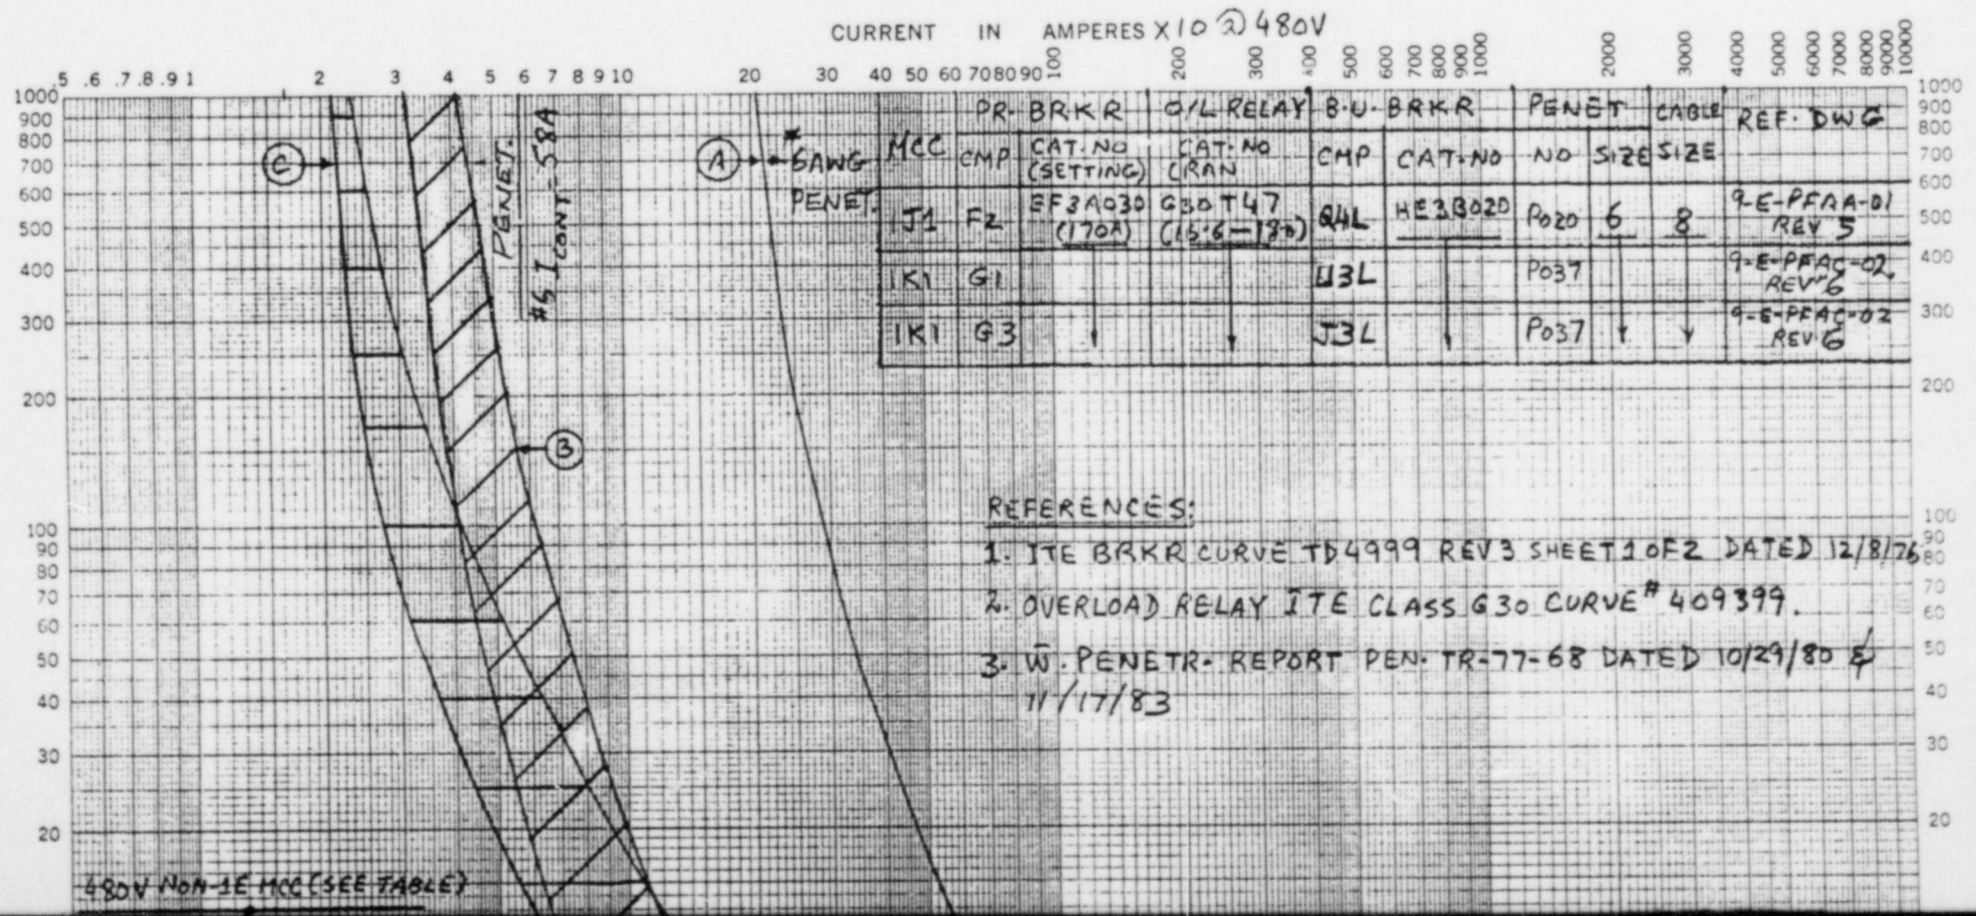 CURRENT IN AMPERES X10 @ 480V
.5 .6 .7 .8 .9 1 2 3 4 5 6 7 8 9 10 20 30 40 50 60 70 80 90 100 200 300 400 500 600 700 800 900 1000 2000 3000 4000 5000 6000 7000 8000 9000 10000
1000 900 800 700 600 500 400 300 200 100 90 80 70 60 50 40 30 20
1000 900 800 700 600 500 400 300 200 100 90 80 70 60 50 40 30 20
C
PENET.
#6 I CONT-58A
A
*
6AWG
PENET.
B
PR. BRKR O/L RELAY B.U. BRKR PENET CABLE REF. DWG
MCC CMP CAT.NO (SETTING) CAT.NO (RAN CMP CAT-NO NO SIZE SIZE
1J1 F2 EF3A030 (170A) G30T47 Q4L HE3B020 P020 6 8 9-E-PFAA-01 REV 5
1K1 G1 U3L P037 9-E-PFAC-02 REV 6
1K1 G3 J3L P037 9-E-PFAC-02 REV 6
REFERENCES:
1. ITE BRKR CURVE TD4999 REV 3 SHEET 1 OF 2 DATED 12/8/76
2. OVERLOAD RELAY ITE CLASS G30 CURVE # 409399.
3. W. PENETR. REPORT PEN. TR-77-68 DATED 10/29/80 &
11/17/83
480V NON-1E MCC (SEE TABLE)